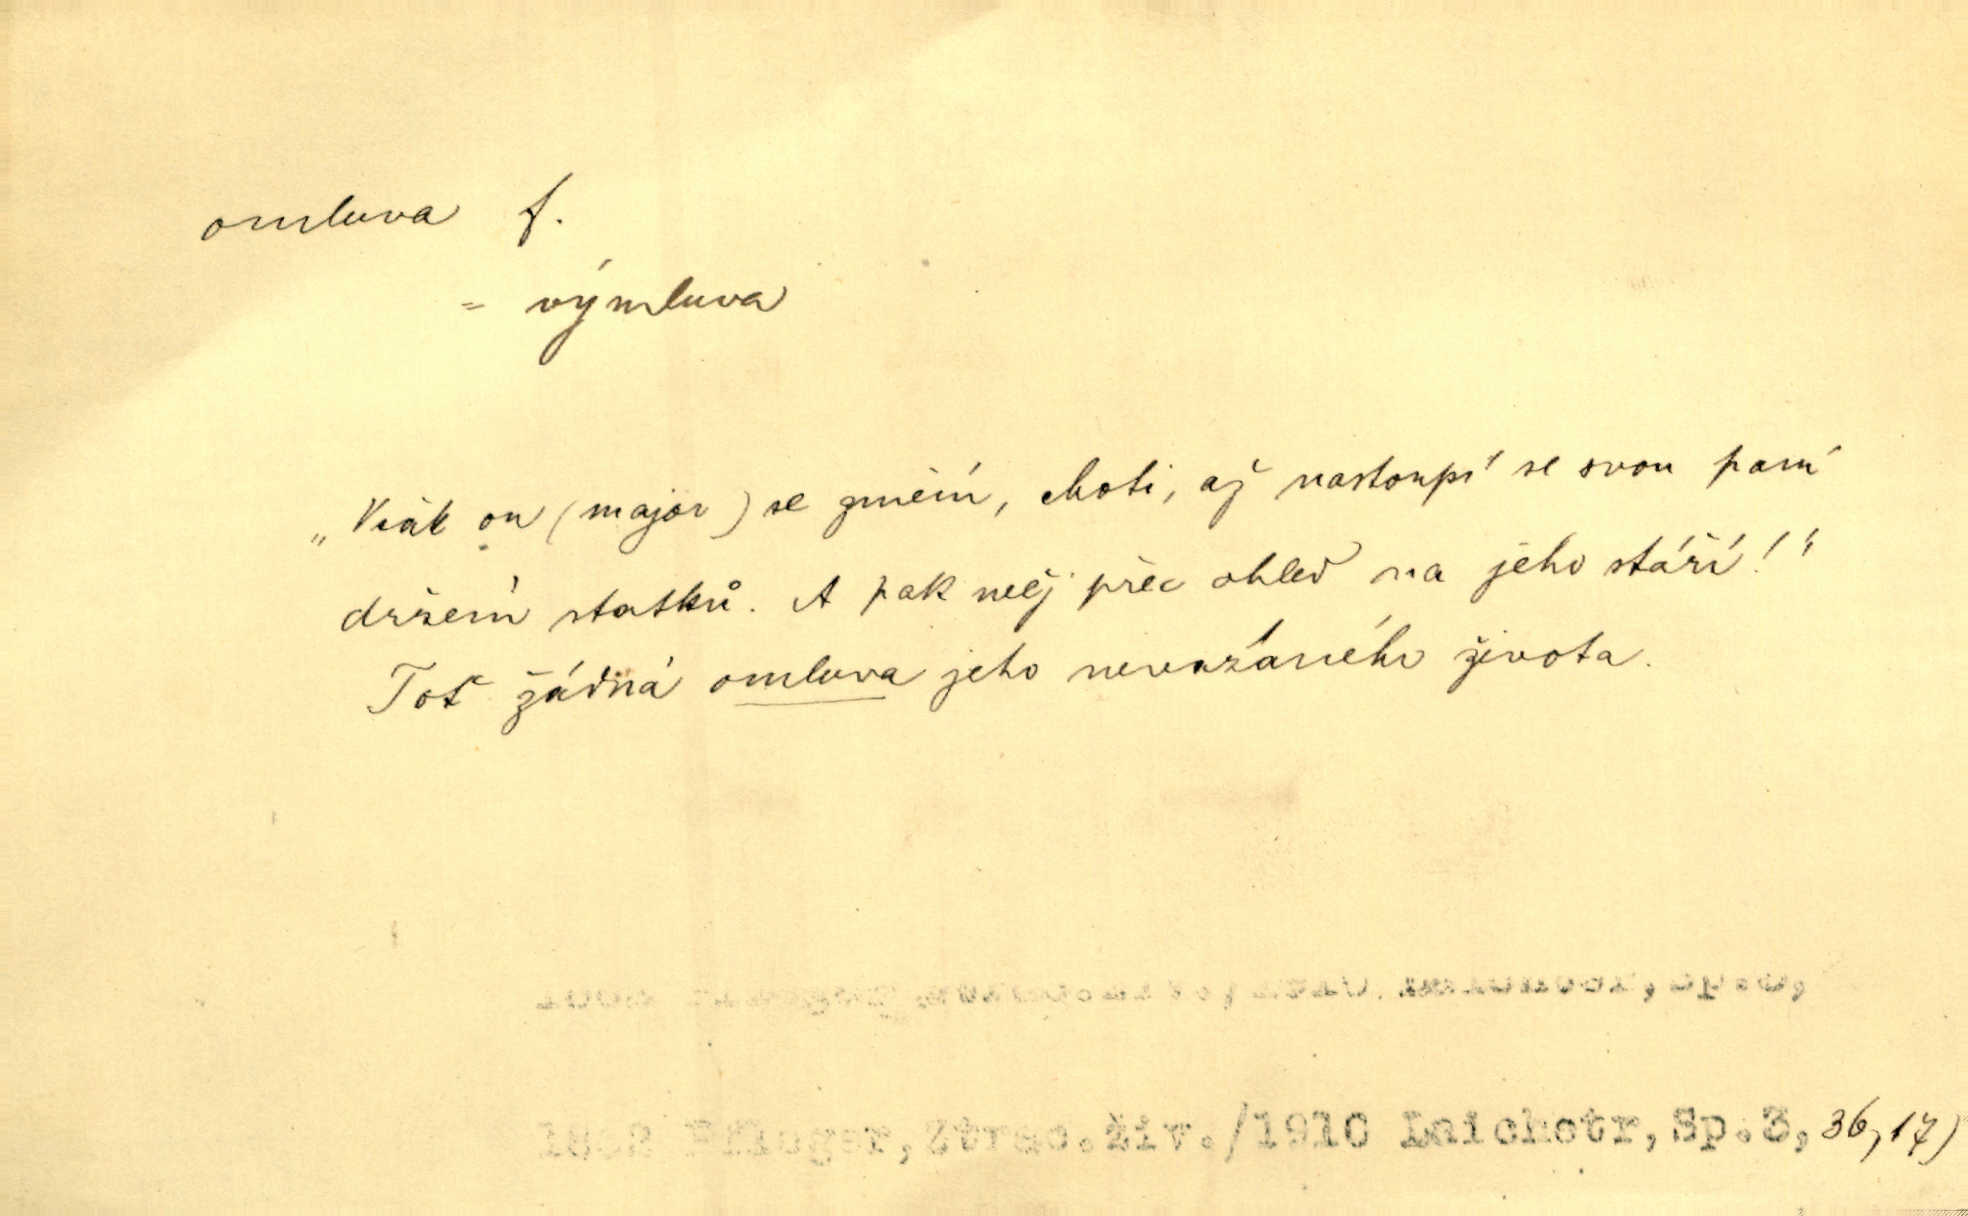 omluva f.
= výmluva
„Však on (major) se změní, choti, až nastoupí se svou paní
držení statků. A pak měj přec ohled na jeho stáří!“
Toť žádná omluva jeho nevázaného života.
1862 Pfleger, Ztrac.živ./1910 Laichotr, Sp.3, 36,17)